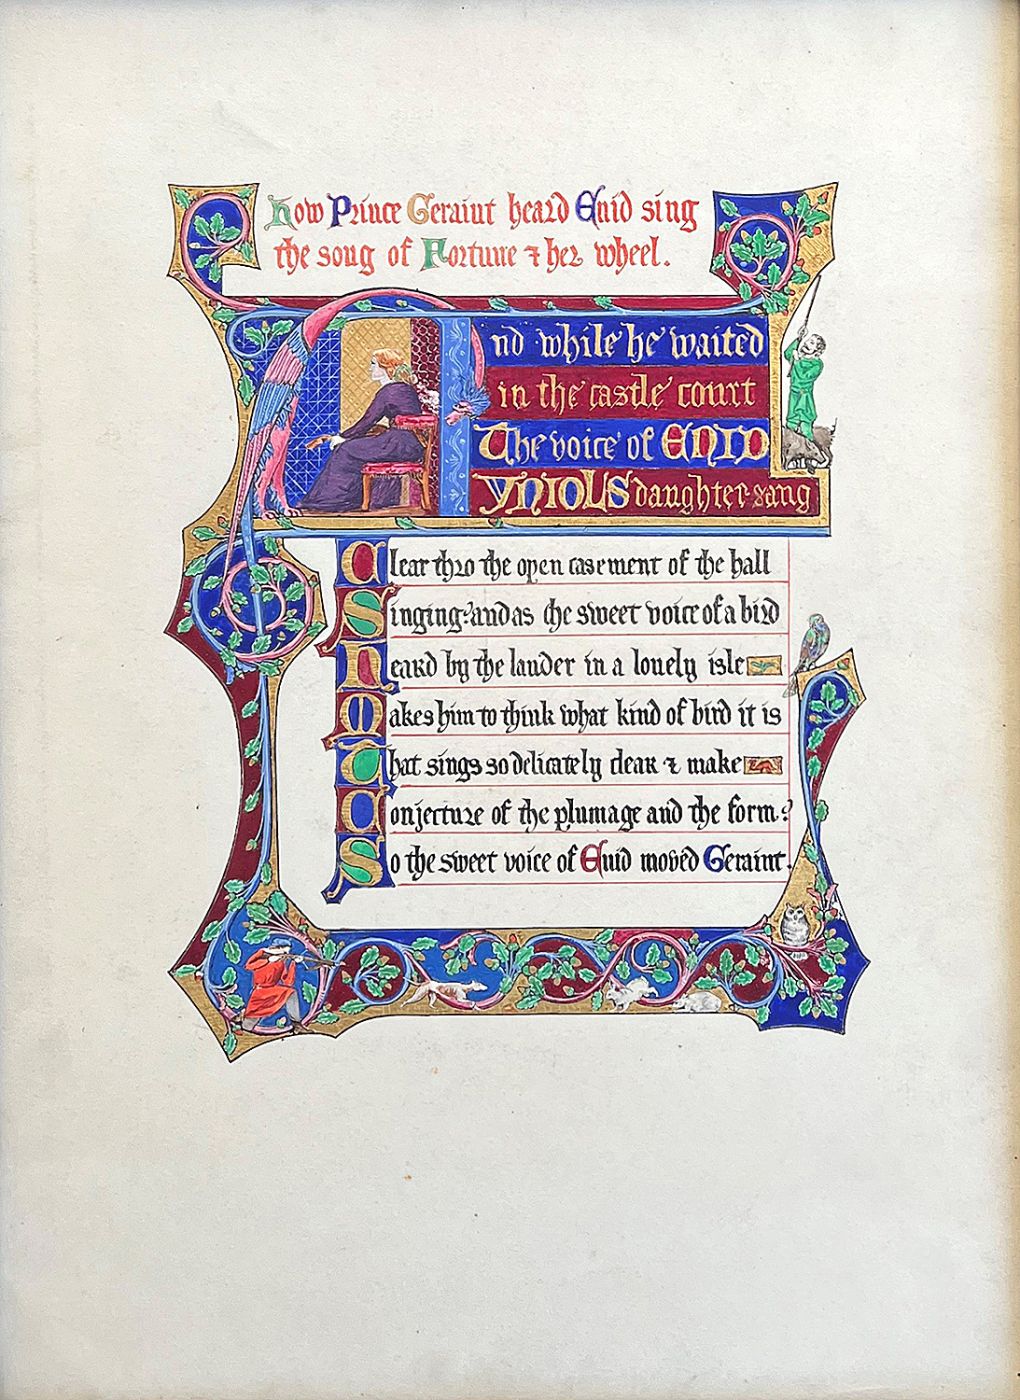 How Prince Geraint heard Enid sing
the song of Fortune & her wheel.
And while he waited
in the castle court
The voice of ENID
YNIOLS daughter sang
Clear thro the open casement of the hall
Singing: and as the sweet voice of a bird
Heard by the lander in a lonely isle
Makes him to think what kind of bird it is
That sings so delicately clear & make
Conjecture of the plumage and the form:
So the sweet voice of Enid moved Geraint.